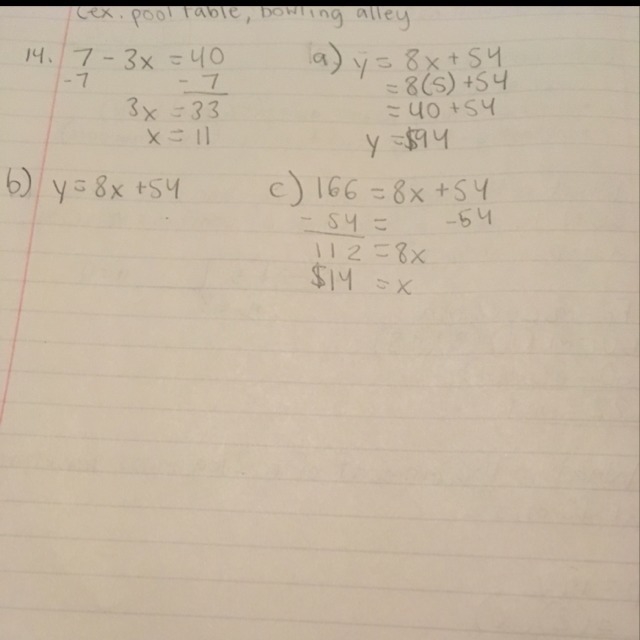 (ex. pool table, bowling alley
14. 7 - 3x = 40
-7 - 7
3x = 33
x = 11
a) y = 8x + 54
= 8(5) + 54
= 40 + 54
y = $94
b) y = 8x + 54
c) 166 = 8x + 54
- 54 = -54
112 = 8x
$14 = x